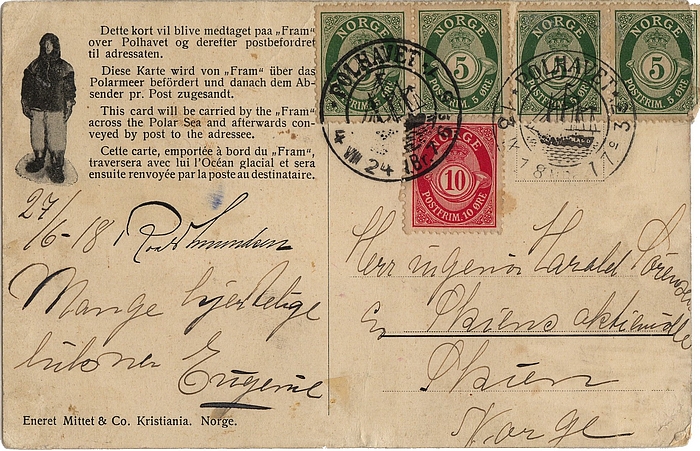 Dette kort vil blive medtaget paa „Fram“
over Polhavet og derefter postbefordret
til adressaten.
Diese Karte wird von „Fram“ über das
Polarmeer befördert und danach dem Ab-
sender pr. Post zugesandt.
This card will be carried by the „Fram“
across the Polar Sea and afterwards con-
veyed by post to the adressee.
Cette carte, emportée à bord du „Fram“,
traversera avec lui l'Océan glacial et sera
ensuite renvoyée par la poste au destinataire.
27/6-18
Roald Amundsen
Mange hjertelige
hilsner Eugenie
Eneret Mittet & Co. Kristiania. Norge.
NORGE
NORGE 5 POSTFRIM. 5 ØRE
NORGE
NORGE 5 POSTFRIM. 5 ØRE
POLHAVET
4 VIII 24
POLHAVET
NORGE
10
POSTFRIM. 10 ØRE
Herr ingeniør Harald Sørensen
Skiens aktiemølle
Skien
Norge